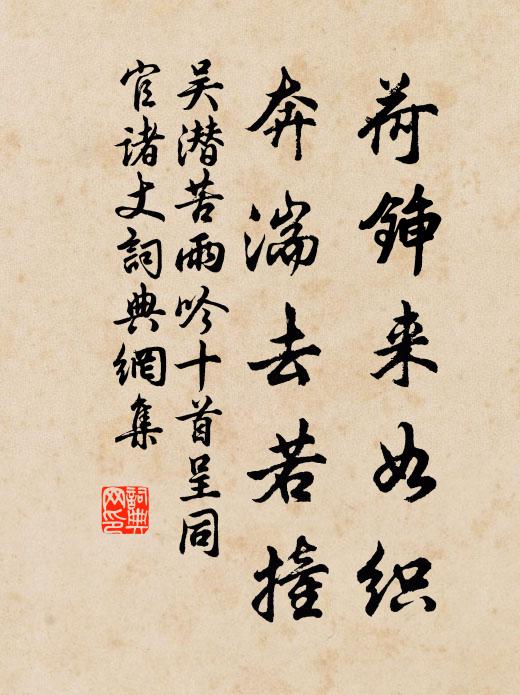 荷鍤来如织
奔湍去若撞
吴潜苦雨吟十首呈同
官诸丈詞典網集
詞典网印